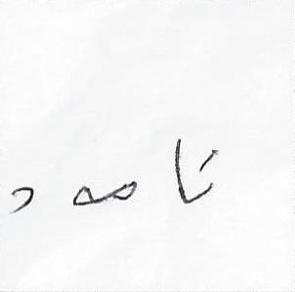 نامه د